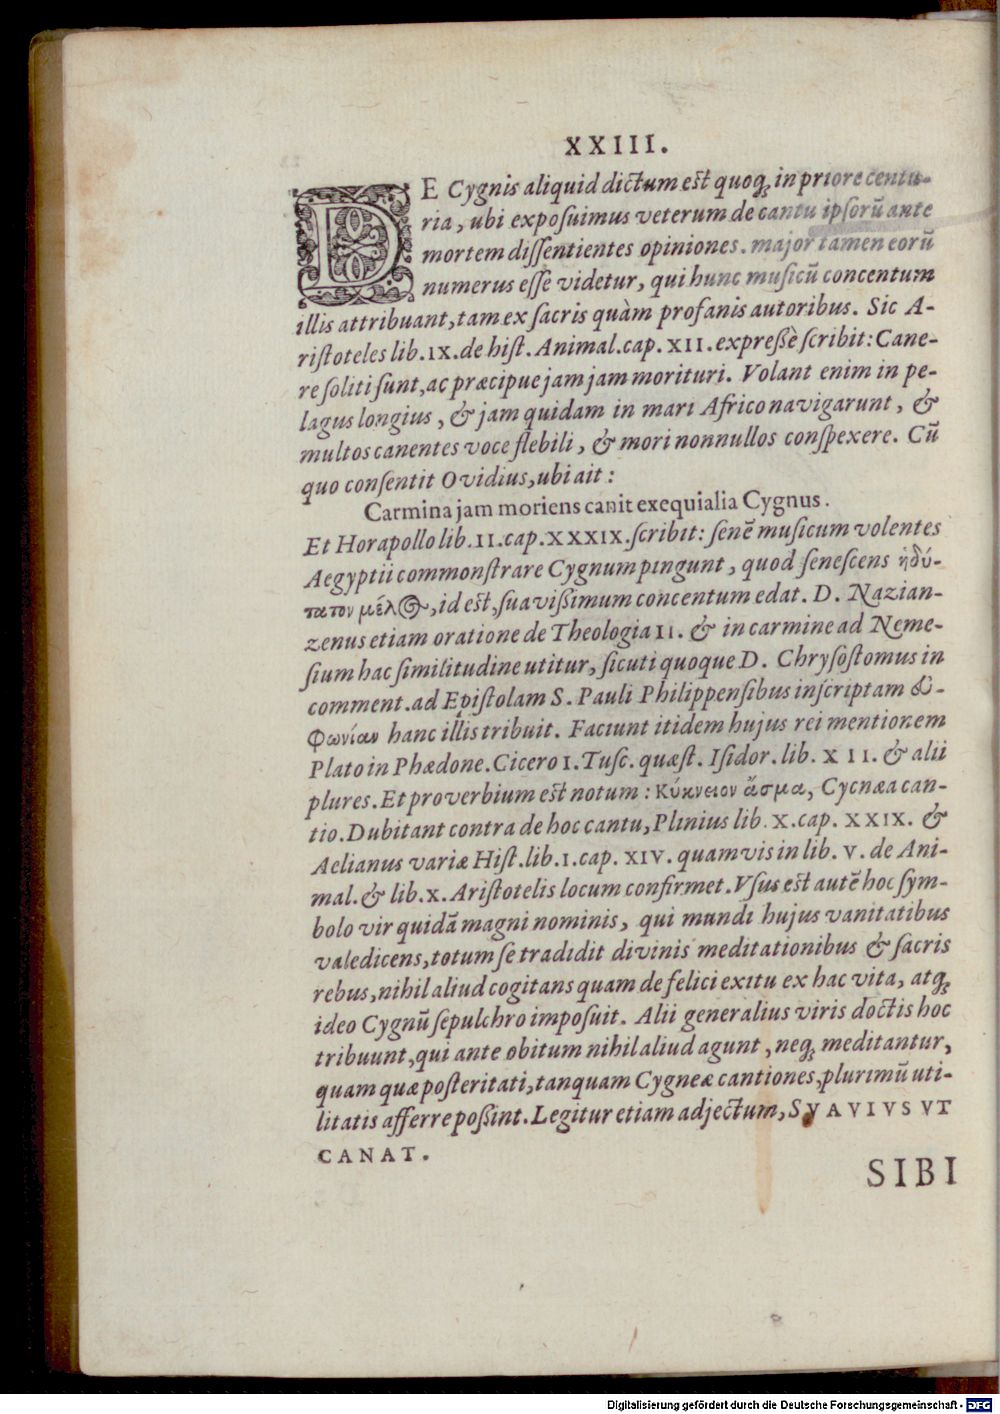 XXIII.
DE Cygnis aliquid dictum est quoqꝫ in priore centu-
ria, ubi exposuimus veterum de cantu ipsorũ ante
mortem dissentientes opiniones. major tamen eorũ
numerus esse videtur, qui hunc musicũ concentum
illis attribuant, tam ex sacris quàm profanis autoribus. Sic A-
ristoteles lib. IX. de hist. Animal. cap. XII. expreßè scribit: Cane-
re soliti sunt, ac præcipue jam jam morituri. Volant enim in pe-
lagus longius, & jam quidam in mari Africo navigarunt, &
multos canentes voce flebili, & mori nonnullos conspexere. Cũ
quo consentit Ovidius, ubi ait:
Carmina jam moriens canit exequialia Cygnus.
Et Horapollo lib. II. cap. XXXIX. scribit: senẽ musicum volentes
Aegyptii commonstrare Cygnum pingunt, quod senescens ἡδύ-
τατον μέλος, id est, suavißimum concentum edat. D. Nazian-
zenus etiam oratione de Theologia II. & in carmine ad Neme-
sium hac similitudine utitur, sicuti quoque D. Chrysostomus in
comment. ad Epistolam S. Pauli Philippensibus inscriptam εὐ-
φωνίαν hanc illis tribuit. Faciunt itidem hujus rei mentionem
Plato in Phædone. Cicero I. Tusc. quæst. Isidor. lib. XII. & alii
plures. Et proverbium est notum: Κύκνειον ἄσμα, Cycnæa can-
tio. Dubitant contra de hoc cantu, Plinius lib. X. cap. XXIX. &
Aelianus variæ Hist. lib. I. cap. XIV. quamvis in lib. V. de Ani-
mal. & lib. X. Aristotelis locum confirmet. Vsus est autẽ hoc sym-
bolo vir quidã magni nominis, qui mundi hujus vanitatibus
valedicens, totum se tradidit divinis meditationibus & sacris
rebus, nihil aliud cogitans quam de felici exitu ex hac vita, atqꝫ
ideo Cygnũ sepulchro imposuit. Alii generalius viris doctis hoc
tribuunt, qui ante obitum nihil aliud agunt, neqꝫ meditantur,
quam quæ posteritati, tanquam Cygneæ cantiones, plurimũ uti-
litatis afferre poßint. Legitur etiam adjectum, SVAVIVS VT
CANAT.
SIBI
Digitalisierung gefördert durch die Deutsche Forschungsgemeinschaft - DFG